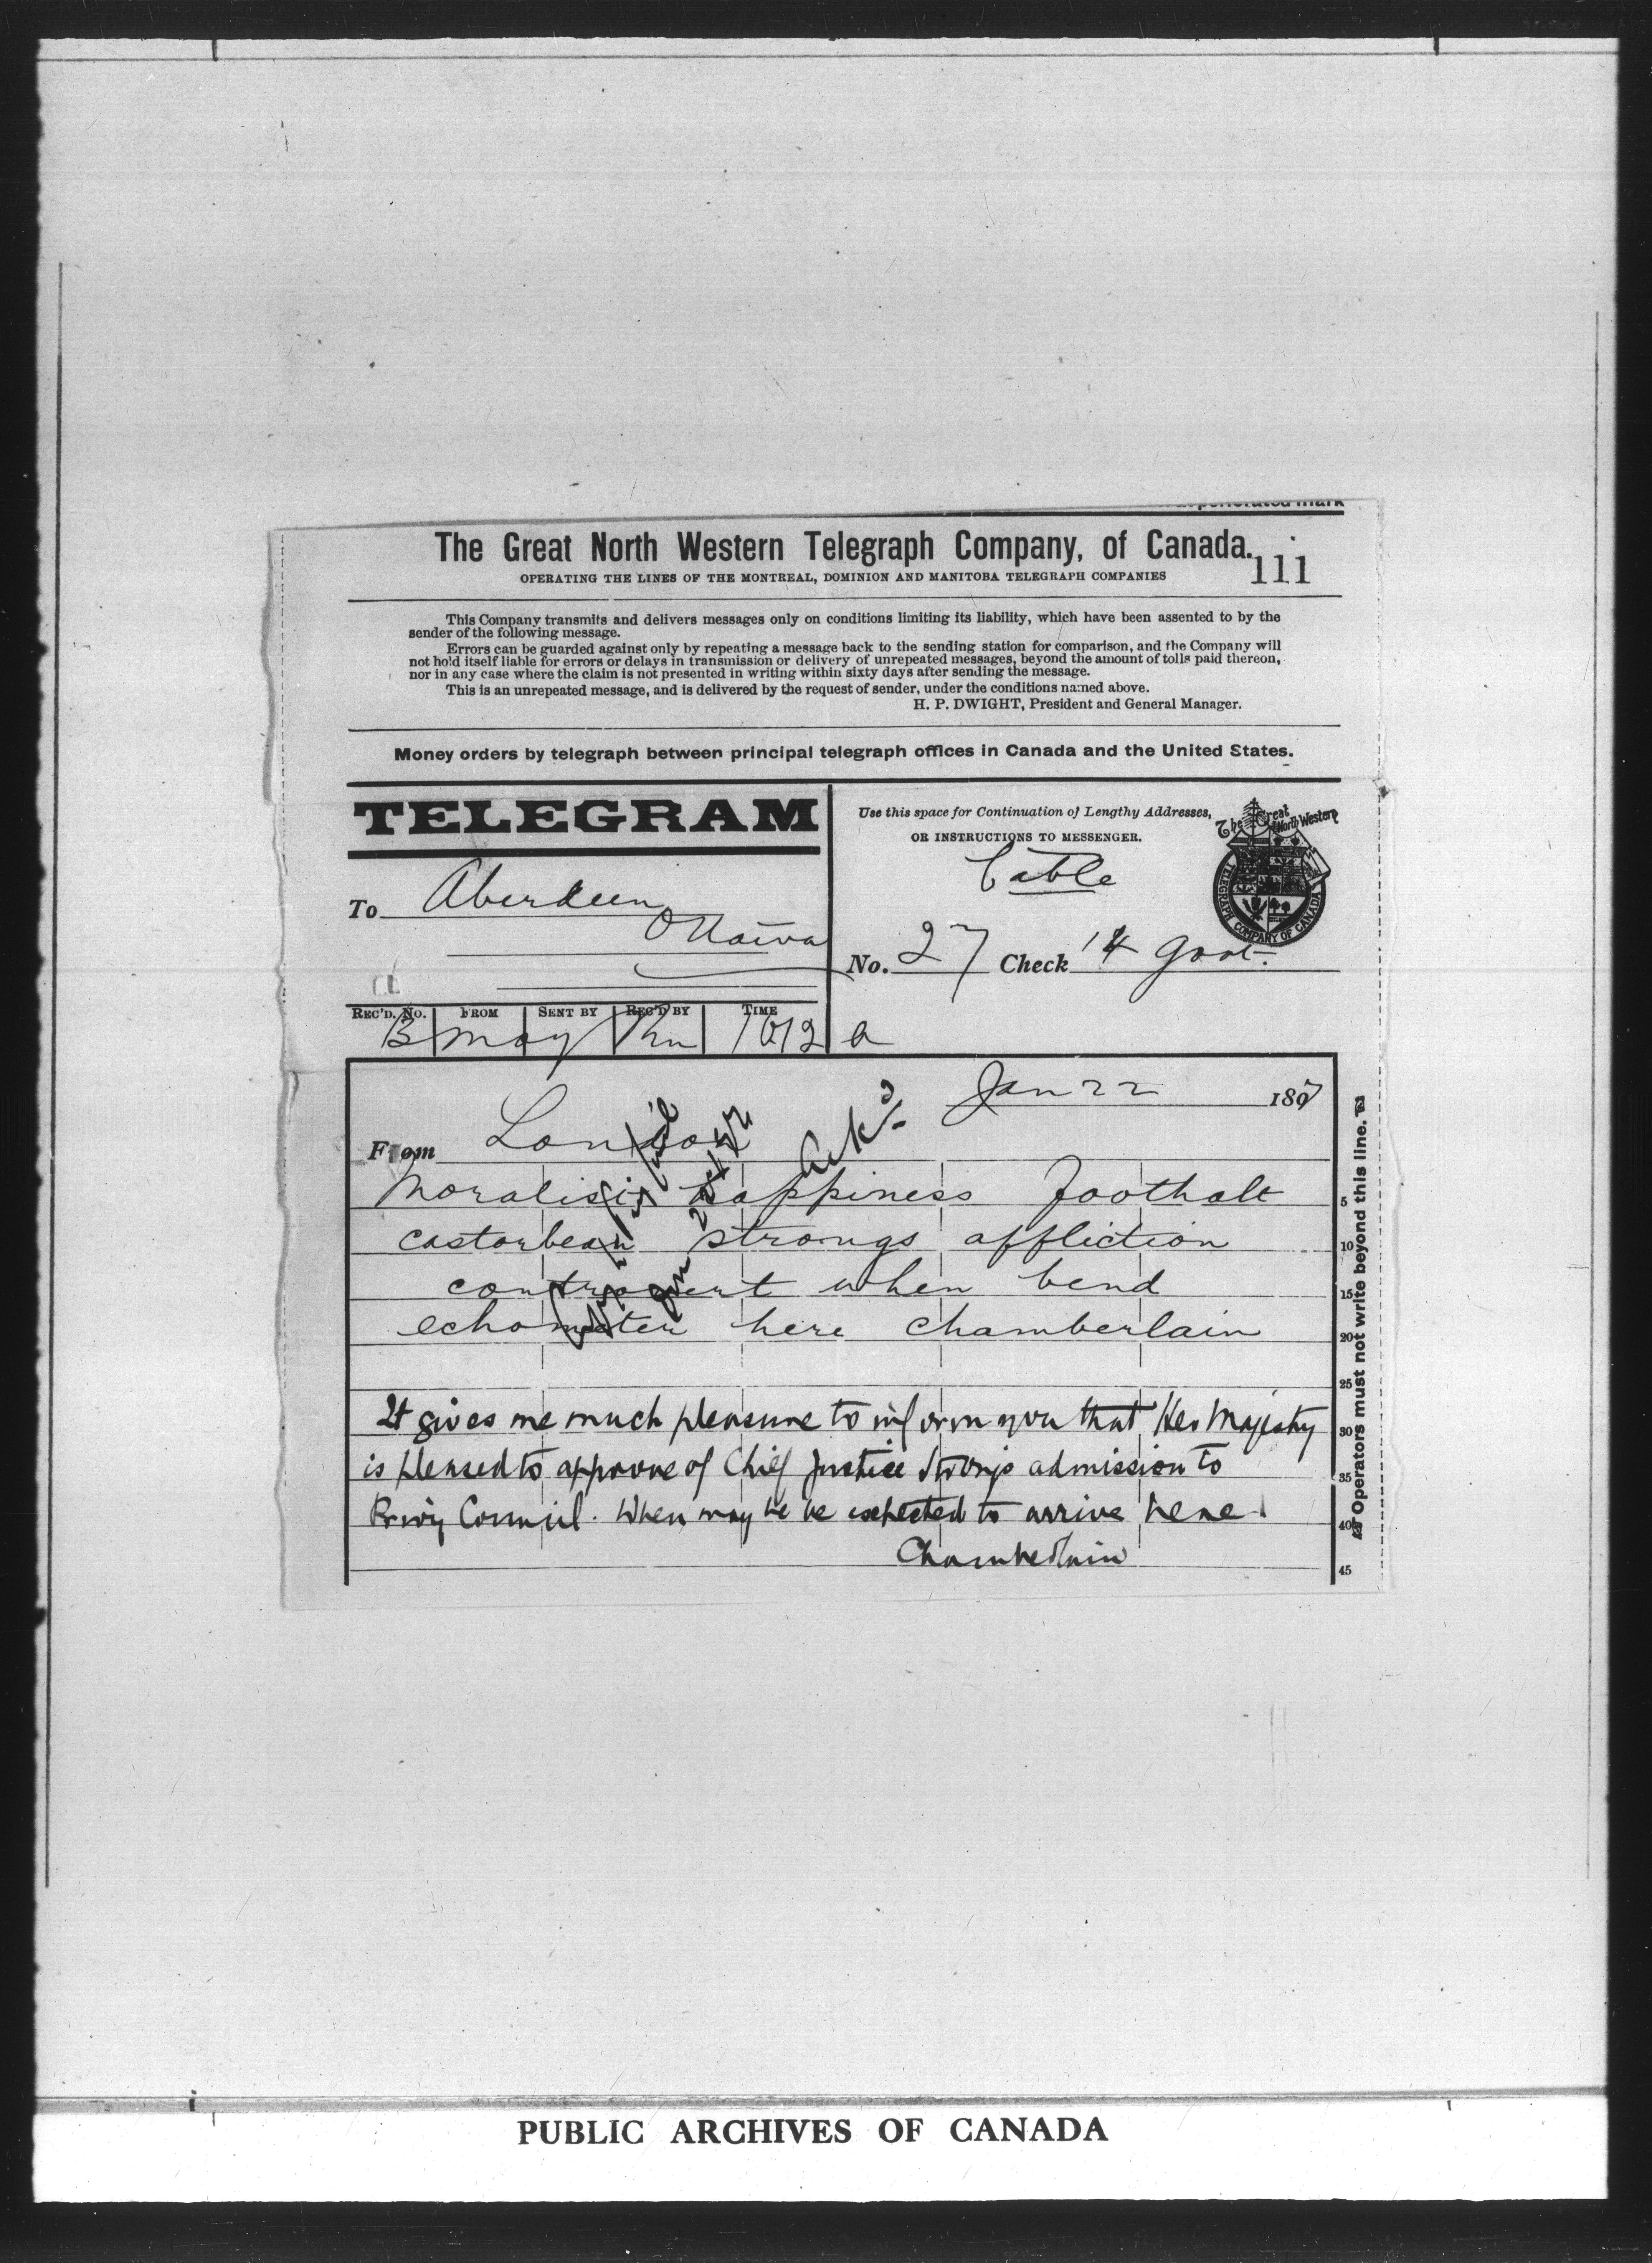 perforated mark
The Great North Western Telegraph Company, of Canada.
111
OPERATING THE LINES OF THE MONTREAL, DOMINION AND MANITOBA TELEGRAPH COMPANIES
This Company transmits and delivers messages only on conditions limiting its liability, which have been assented to by the
sender of the following message.
Errors can be guarded against only by repeating a message back to the sending station for comparison, and the Company will
not hold itself liable for errors or delays in transmission or delivery of unrepeated messages, beyond the amount of tolls paid thereon,
nor in any case where the claim is not presented in writing within sixty days after sending the message.
This is an unrepeated message, and is delivered by the request of sender, under the conditions named above.
H. P. DWIGHT, President and General Manager.
Money orders by telegraph between principal telegraph offices in Canada and the United States.
TELEGRAM
Use this space for Continuation of Lengthy Addresses,
OR INSTRUCTIONS TO MESSENGER.
The Great North Western
TELEGRAPH COMPANY OF CANADA
Cable
To Aberdeen
Ottawa
No. 27 Check 14 Govt.
REC'D. No. FROM SENT BY REC'D BY TIME
B May 1012 a
Jan 22 1897
From London
Ackd
Moralisis happiness foothalt
castorbean strongs affliction
contravert when bend
echometer here Chamberlain
It gives me much pleasure to inform you that Her Majesty
is pleased to approve of Chief Justice Strongs admission to
Privy Council. When may he be expected to arrive here.
Chamberlain
5
10
15
20
25
30
35
40
45
Operators must not write beyond this line.
PUBLIC ARCHIVES OF CANADA